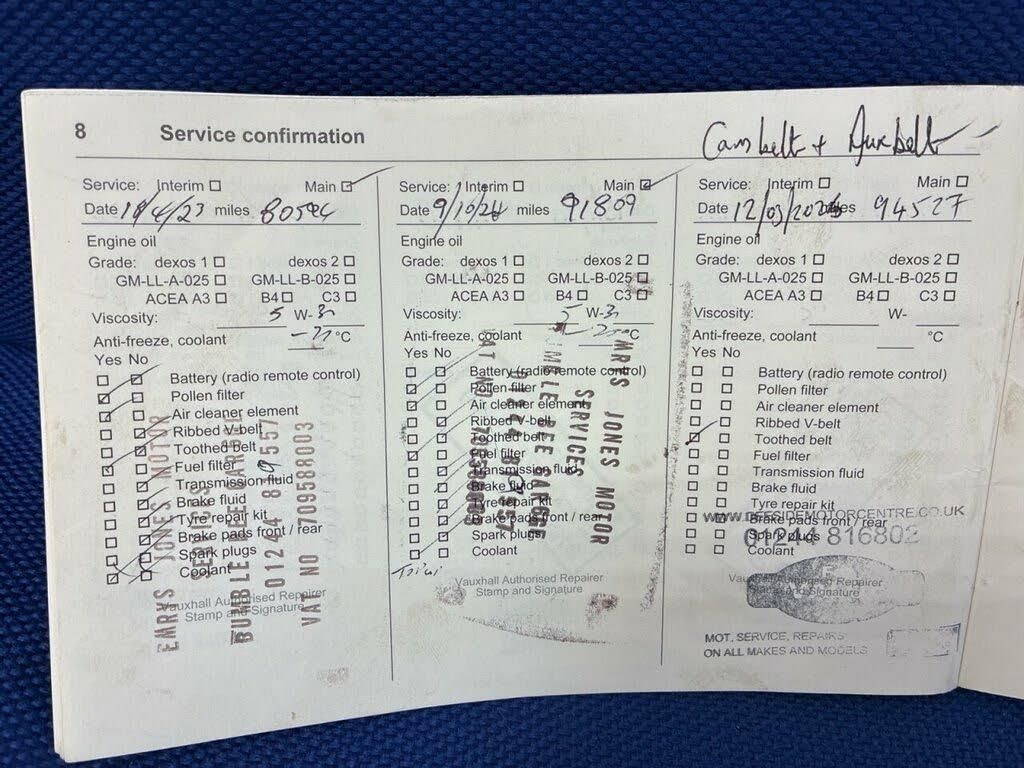 8 Service confirmation
Cambelt + Auxbelt
Service: Interim Main
Date 1/4/23 miles
Engine oil
Grade: dexos 1 dexos 2
GM-LL-A-025 GM-LL-B-025
ACEA A3 B4 C3
Viscosity: 5 W-
Anti-freeze, coolant °C
Yes No
Battery (radio remote control)
Pollen filter
Air cleaner element
Ribbed V-belt
Toothed belt
Fuel filter
Transmission fluid
Brake fluid
Tyre repair kit
Brake pads front / rear
Spark plugs
Coolant
Vauxhall Authorised Repairer
Stamp and Signature
EMRYS JONES MOTOR
SERVICES
BUMBLE BEE GARAGE
01244 819557
VAT NO 709588003
Service: Interim Main
Date 9/10/24 miles 91809
Engine oil
Grade: dexos 1 dexos 2
GM-LL-A-025 GM-LL-B-025
ACEA A3 B4 C3
Viscosity: 5 W-
Anti-freeze, coolant °C
Yes No
Battery (radio remote control)
Pollen filter
Air cleaner element
Ribbed V-belt
Toothed belt
Fuel filter
Transmission fluid
Brake fluid
Tyre repair kit
Brake pads front / rear
Spark plugs
Coolant
Vauxhall Authorised Repairer
Stamp and Signature
EMRYS JONES MOTOR
SERVICES
BUMBLE BEE GARAGE
VAT NO
Service: Interim Main
Date 12/03/ miles 94527
Engine oil
Grade: dexos 1 dexos 2
GM-LL-A-025 GM-LL-B-025
ACEA A3 B4 C3
Viscosity: W-
Anti-freeze, coolant °C
Yes No
Battery (radio remote control)
Pollen filter
Air cleaner element
Ribbed V-belt
Toothed belt
Fuel filter
Transmission fluid
Brake fluid
Tyre repair kit
Brake pads front / rear
Spark plugs
Coolant
Vauxhall Authorised Repairer
Stamp and Signature
WWW.DEESIDEMOTORCENTRE.CO.UK
01244 816802
MOT, SERVICE, REPAIRS
ON ALL MAKES AND MODELS